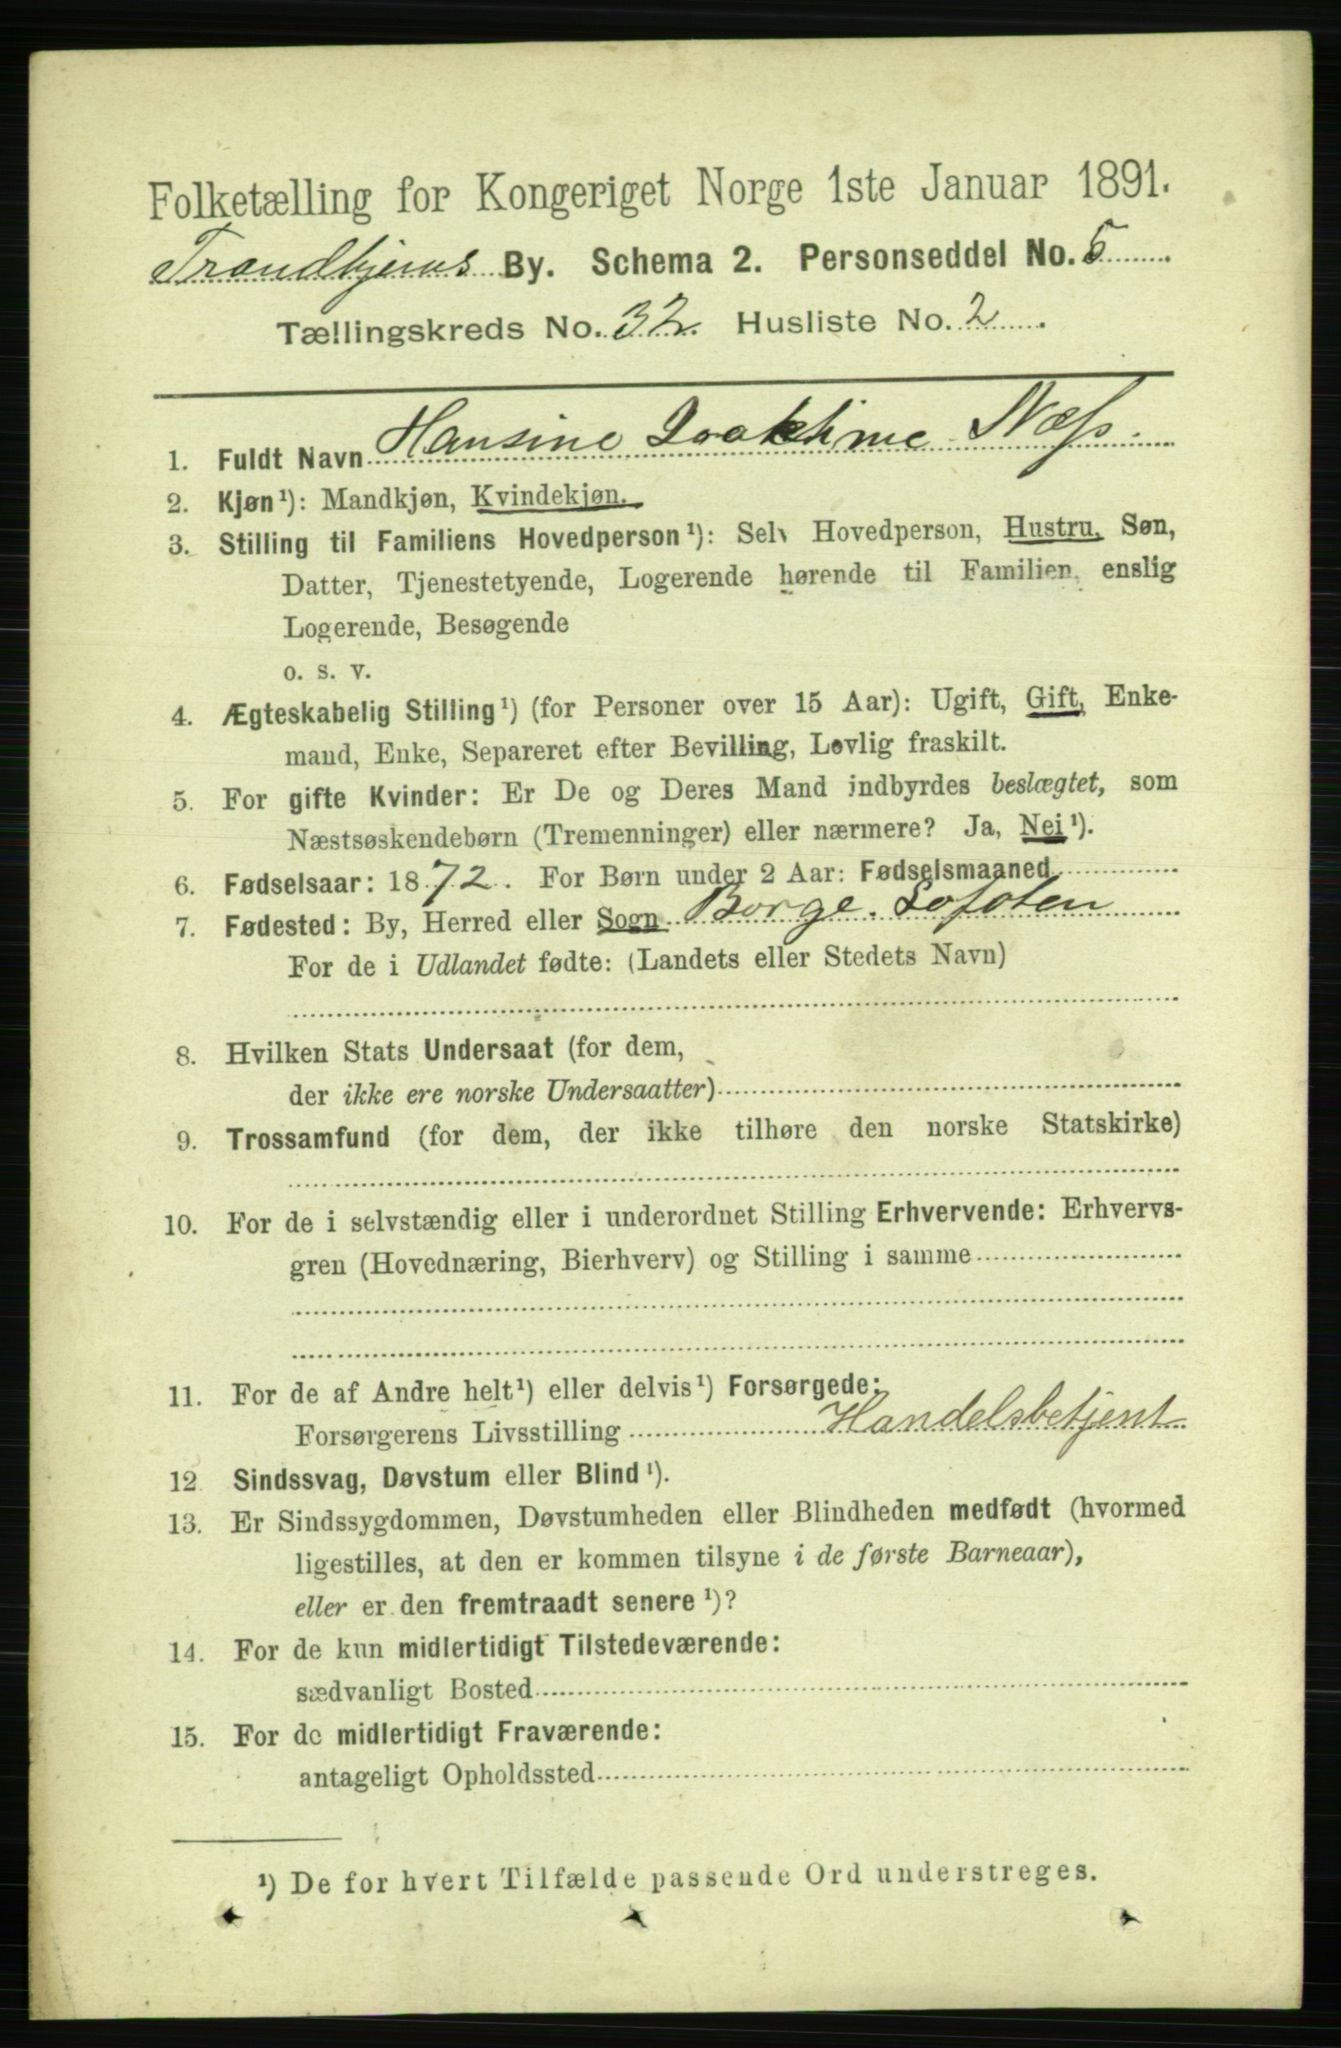 Folketælling for Kongeriget Norge 1ste Januar 1891.
Trondhjems By. Schema 2. Personseddel No. 5
Tællingskreds No. 32. Husliste No. 2
1. Fuldt Navn Hansine Næss.
2. Kjøn¹): Mandkjøn, Kvindekjøn.
3. Stilling til Familiens Hovedperson¹): Selv Hovedperson, Hustru, Søn,
Datter, Tjenestetyende, Logerende hørende til Familien, enslig
Logerende, Besøgende
o. s. v.
4. Ægteskabelig Stilling¹) (for Personer over 15 Aar): Ugift, Gift, Enke-
mand, Enke, Separeret efter Bevilling, Lovlig fraskilt.
5. For gifte Kvinder: Er De og Deres Mand indbyrdes beslægtet, som
Næstsøskendebørn (Tremenninger) eller nærmere? Ja, Nei¹).
6. Fødselsaar: 1872. For Børn under 2 Aar: Fødselsmaaned
7. Fødested: By, Herred eller Sogn Borge. Lofoten
For de i Udlandet fødte: (Landets eller Stedets Navn)
8. Hvilken Stats Undersaat (for dem,
der ikke ere norske Undersaatter)
9. Trossamfund (for dem, der ikke tilhøre den norske Statskirke)
10. For de i selvstændig eller i underordnet Stilling Erhvervende: Erhvervs-
gren (Hovednæring, Bierhverv) og Stilling i samme
11. For de af Andre helt¹) eller delvis¹) Forsørgede:
Forsørgerens Livsstilling Handelsbetjent
12 Sindssvag, Døvstum eller Blind¹).
13. Er Sindssygdommen, Døvstumheden eller Blindheden medfødt (hvormed
ligestilles, at den er kommen tilsyne i de første Barneaar),
eller er den fremtraadt senere¹)?
14. For de kun midlertidigt Tilstedeværende:
sædvanligt Bosted
15. For de midlertidigt Fraværende:
antageligt Opholdssted
¹) De for hvert Tilfælde passende Ord understreges.